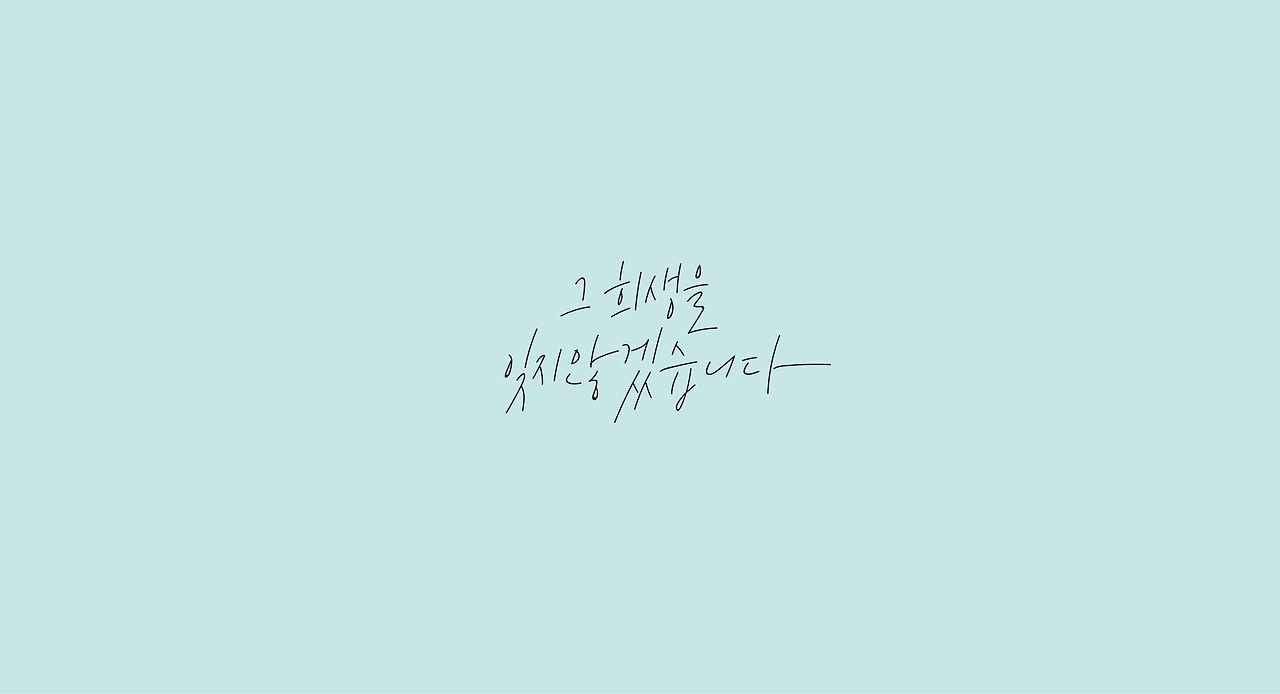 그 희생을
잊지않겠습니다